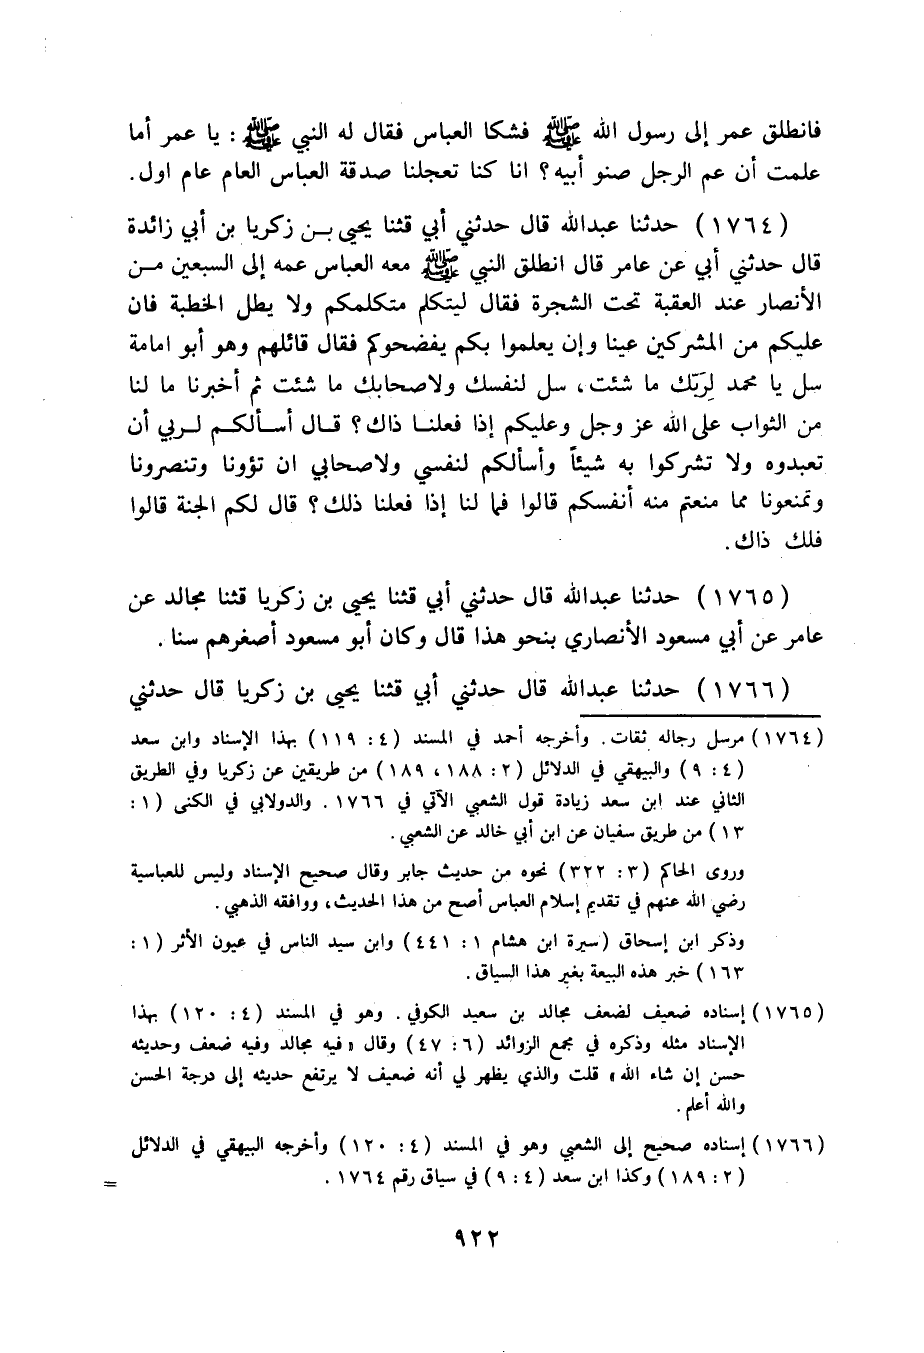 فانطلق عمر إلى رسول الله ﷺ فشكا العباس فقال له النبي ﷺ : يا عمر أما
علمت أن عم الرجل صنو أبيه؟ انا كنا تعجلنا صدقة العباس العام عام اول.
(١٧٦٤) حدثنا عبدالله قال حدثني أبي قثنا يحيى بـن زكريا بن أبي زائدة
قال حدثني أبي عن عامر قال انطلق النبي ﷺ معه العباس عمه إلى السبعين مـن
الأنصار عند العقبة تحت الشجرة فقال ليتكلم متكلمكم ولا يطل الخطبة فان
عليكم من المشركين عينا وإن يعلموا بكم يفضحوكم فقال قائلهم وهو أبو امامة
سل يا محمد لِرَبّك ما شئت، سل لنفسك ولاصحابك ما شئت ثم أخبرنا ما لنا
من الثواب على الله عز وجل وعليكم إذا فعلنـا ذاك؟ قـال أسـألكـم لـربي أن
تعبدوه ولا تشركوا به شيئاً وأسألكم لنفسي ولاصحابي ان تؤونا وتنصرونا
وتمنعونا مما منعتم منه أنفسكم قالوا فما لنا إذا فعلنا ذلك؟ قال لكم الجنة قالوا
فلك ذاك.
(١٧٦٥) حدثنا عبدالله قال حدثني أبي قثنا يحيى بن زكريا قثنا مجالد عن
عامر عن أبي مسعود الأنصاري بنحو هذا قال وكان أبو مسعود أصغرهم سنا .
(١٧٦٦) حدثنا عبدالله قال حدثني أبي قثنا يحيى بن زكريا قال حدثني
(١٧٦٤) مرسل رجاله ثقات. وأخرجه أحمد في المسند (٤: ١١٩) بهذا الإسناد وابن سعد
(٤: ٩) والبيهقي في الدلائل (٢: ١٨٨، ١٨٩) من طريقين عن زكريا وفي الطريق
الثاني عند ابن سعد زيادة قول الشعبي الآتي في ١٧٦٦. والدولابي في الكنى (١:
١٣) من طريق سفيان عن ابن أبي خالد عن الشعبي.
وروى الحاكم (٣: ٣٢٢) نحوه من حديث جابر وقال صحيح الإسناد وليس للعباسية
رضي الله عنهم في تقديم إسلام العباس أصح من هذا الحديث، ووافقه الذهبي.
وذكر ابن إسحاق (سيرة ابن هشام ١: ٤٤١) وابن سيد الناس في عيون الأثر (١:
١٦٣) خبر هذه البيعة بغير هذا السياق.
(١٧٦٥) إسناده ضعيف لضعف مجالد بن سعيد الكوفي. وهو في المسند (٤: ١٢٠) بهذا
الإسناد مثله وذكره في مجمع الزوائد (٦: ٤٧) وقال «فيه مجالد وفيه ضعف وحديثه
حسن إن شاء الله» قلت والذي يظهر لي أنه ضعيف لا يرتفع حديثه إلى درجة الحسن
والله أعلم.
(١٧٦٦) إسناده صحيح إلى الشعبي وهو في المسند (٤: ١٢٠) وأخرجه البيهقي في الدلائل
(٢: ١٨٩) وكذا ابن سعد (٤: ٩) في سياق رقم ١٧٦٤.
=
٩٢٢